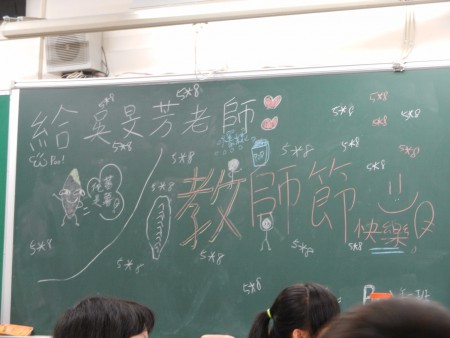 給吳旻芳老師
教師節
快樂
5*8
5*8
5*8
5*8
5*8
5*8
5*8
5*8
5*8
5*8
5*8
5*8
5*8
5*8
5*8
5*8
5*8
5*8
5*8